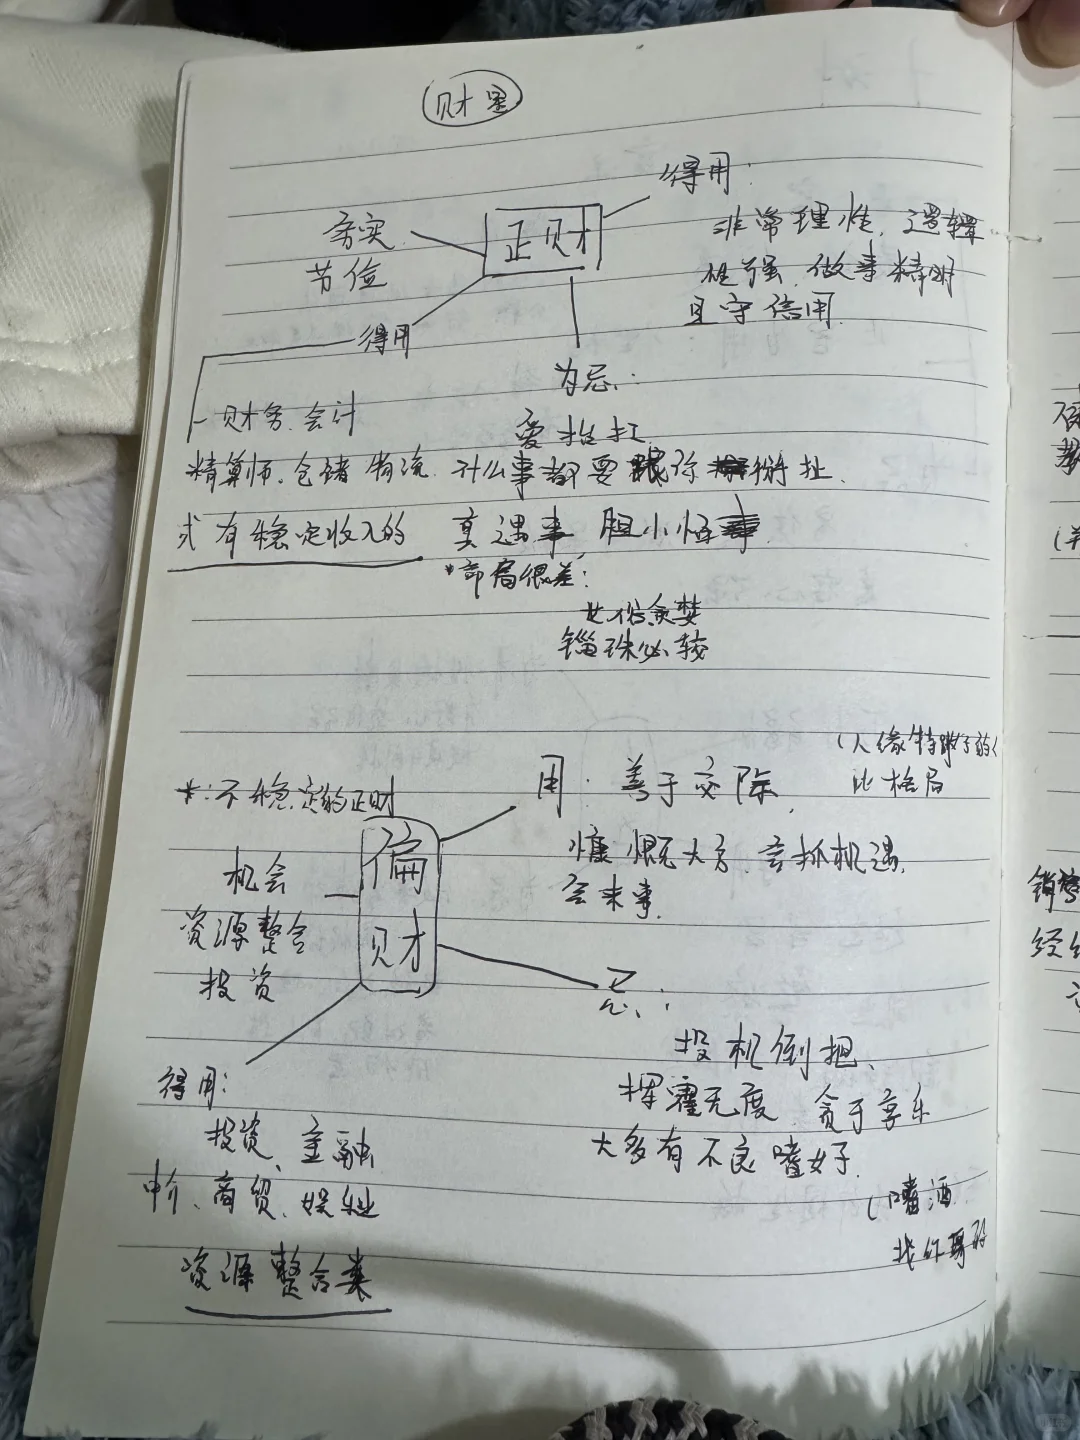 财星
正财
务实
节俭
得用:
非常理性,逻辑
性强,做事精明
且守信用
得用
一财务、会计
精算师、仓储物流
或有稳定收入的
为忌:
爱抬扛
什么事都要跟你掰扯
真遇事,胆小怕事
*布局很差:
世俗贪婪
锱珠必较
*:不稳定的正财
偏财
机会
资源整合
投资
用:善于交际,
(人缘特
比格局
慷慨大方,善抓机遇,
会来事
忌:
投机倒把、
挥霍无度 贪于享乐
大多有不良嗜好
(嗜酒
找
得用:
投资、金融
中介、商贸、娱乐业
资源整合类
销售
经